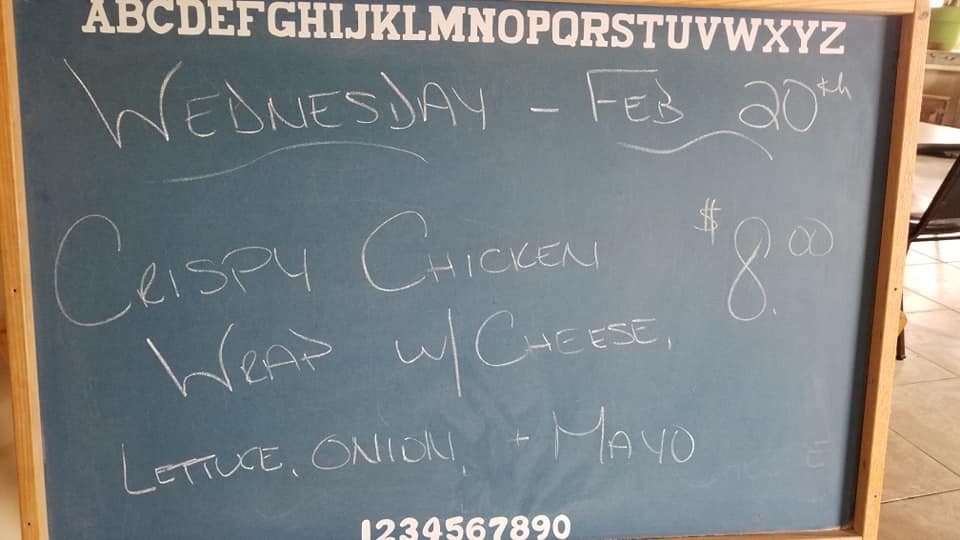 ABCDEFGHIJKLMNOPQRSTUVWXYZ
WEDNESDAY - FEB 20th
CRISPY CHICKEN $8.00
WRAP w/ CHEESE,
LETTUCE, ONION, + MAYO
1234567890